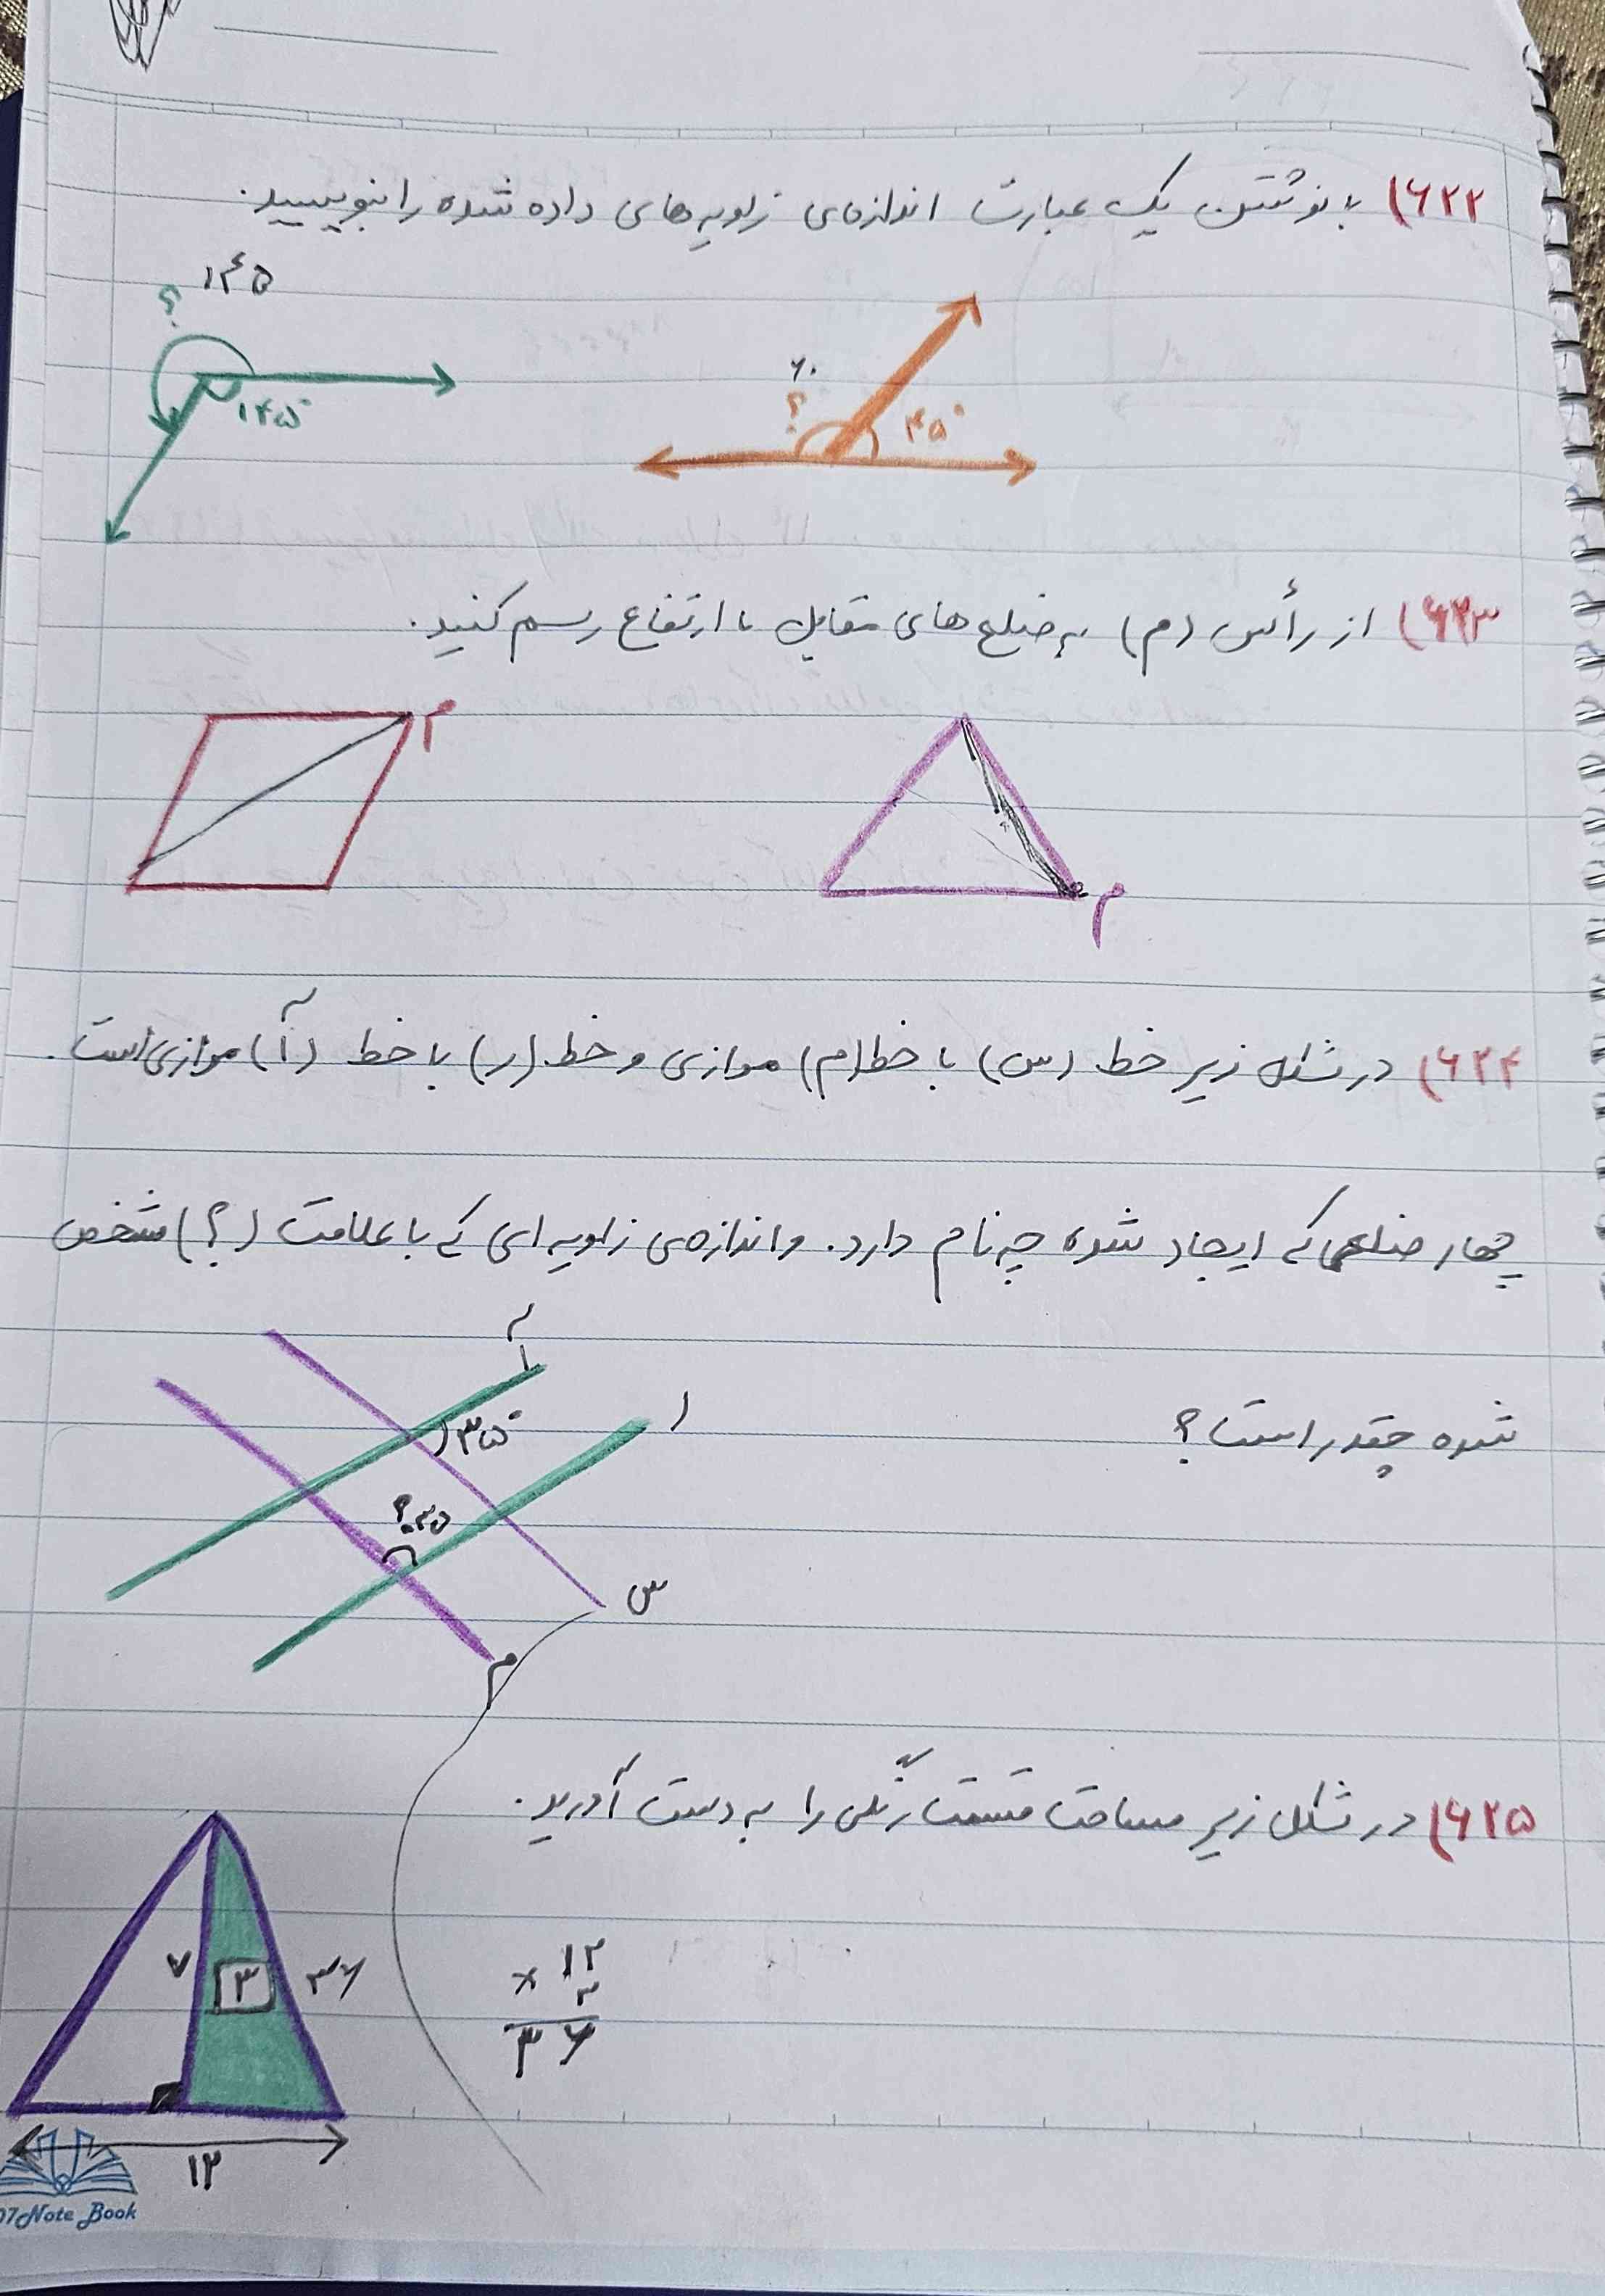 ۶۲۲) با نوشتن یک عبارت اندازه‌ی زاویه‌های داده شده را بنویسید.
۱۴۵
؟
۱۴۵°
۶۰
؟
۴۵°
۶۲۳) از رأس (م) به ضلع‌های مقابل ارتفاع رسم کنید.
م
م
۶۲۴) در شکل زیر خط (س) با خط (م) موازی و خط (ر) با خط (آ) موازی است.
چهار ضلعی که ایجاد شده چه نام دارد. و اندازه‌ی زاویه‌ای که با علامت (؟) مشخص
شده چقدر است؟
آ
ر
۳۵°
؟ ۳۵
س
م
۶۲۵) در شکل زیر مساحت قسمت رنگی را به دست آورید.
۷
۳
۳۶
۱۲
× ۳
۳۶
۱۲
07 Note Book